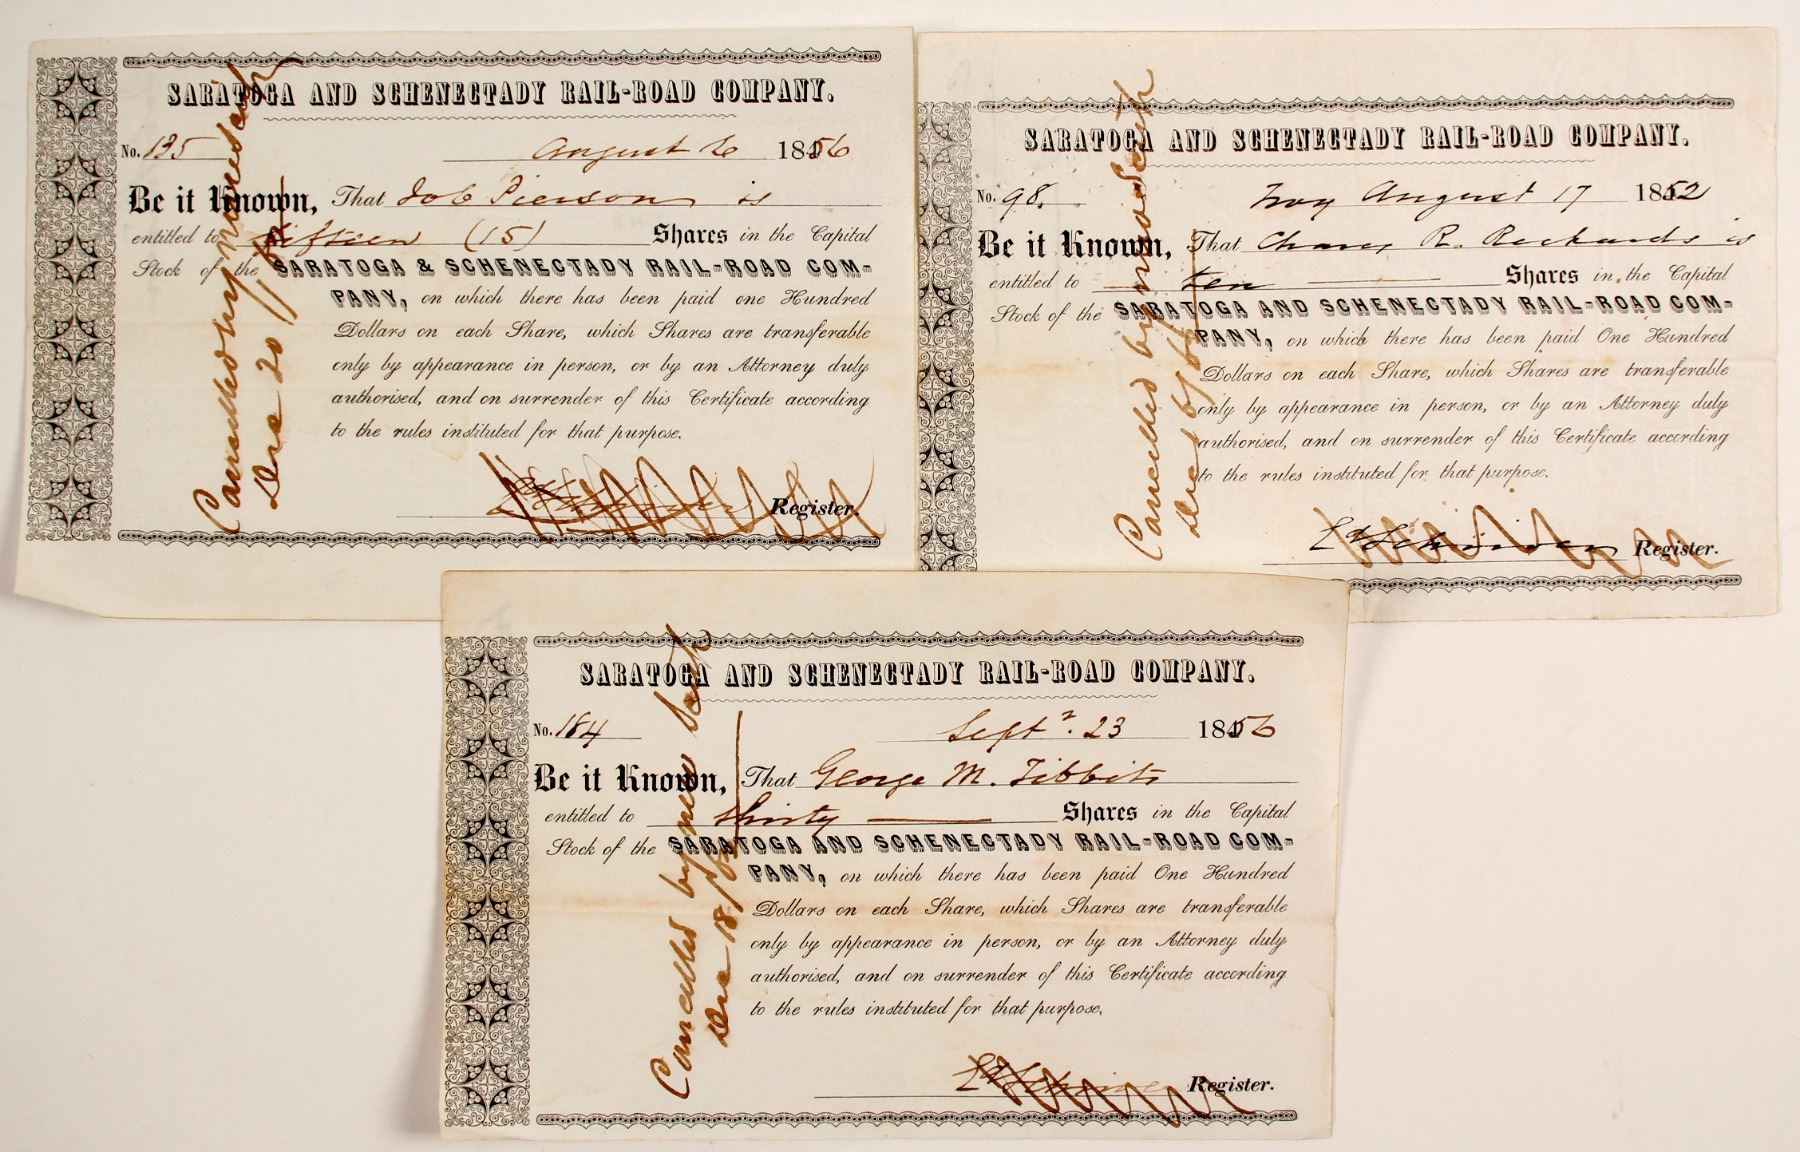 SARATOGA AND SCHENECTADY RAIL-ROAD COMPANY.
No. 135 August 6 1856
Be it Known, That Job Pierson is
entitled to fifteen (15) Shares in the Capital
Stock of the SARATOGA & SCHENECTADY RAIL-ROAD COM-
PANY, on which there has been paid one Hundred
Dollars on each Share, which Shares are transferable
only by appearance in person, or by an Attorney duly
authorised, and on surrender of this Certificate according
to the rules instituted for that purpose.
Register.
Cancelled by new
Dec 20
SARATOGA AND SCHENECTADY RAIL-ROAD COMPANY.
No. 98. Troy August 17 1852
Be it Known, That R. Richards is
entitled to ten Shares in the Capital
Stock of the SARATOGA AND SCHENECTADY RAIL-ROAD COM-
PANY, on which there has been paid One Hundred
Dollars on each Share, which Shares are transferable
only by appearance in person, or by an Attorney duly
authorised, and on surrender of this Certificate according
to the rules instituted for that purpose.
Register.
Cancelled by new
Dec
SARATOGA AND SCHENECTADY RAIL-ROAD COMPANY.
No. 184 Septr. 23 1856
Be it Known, That George M. Tibbits
entitled to thirty Shares in the Capital
Stock of the SARATOGA AND SCHENECTADY RAIL-ROAD COM-
PANY, on which there has been paid One Hundred
Dollars on each Share, which Shares are transferable
only by appearance in person, or by an Attorney duly
authorised, and on surrender of this Certificate according
to the rules instituted for that purpose.
Register.
Cancelled by new
Dec 18